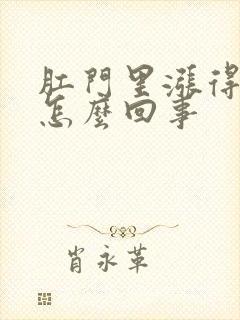 肛門里漲得
怎麼回事
肖永革